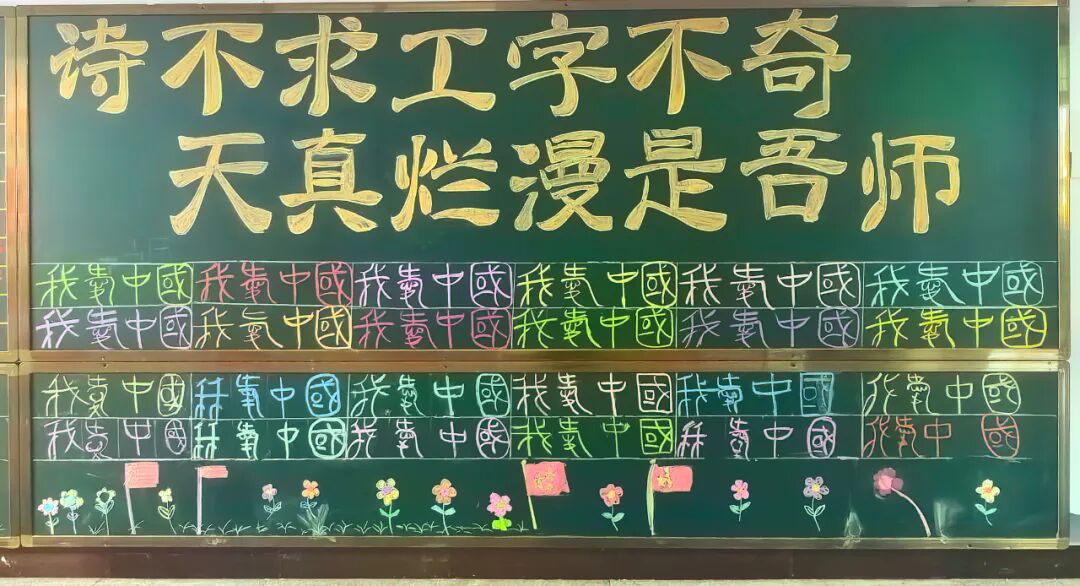 诗不求工字不奇
天真烂漫是吾师
我爱中國 我爱中國 我爱中國 我爱中國 我爱中國 我爱中國
我爱中國 我爱中國 我爱中國 我爱中國 我爱中國 我爱中國
我爱中國 我爱中國 我爱中國 我爱中國 我爱中國 我爱中國
我爱中國 我爱中國 我爱中國 我爱中國 我爱中國 我爱中國